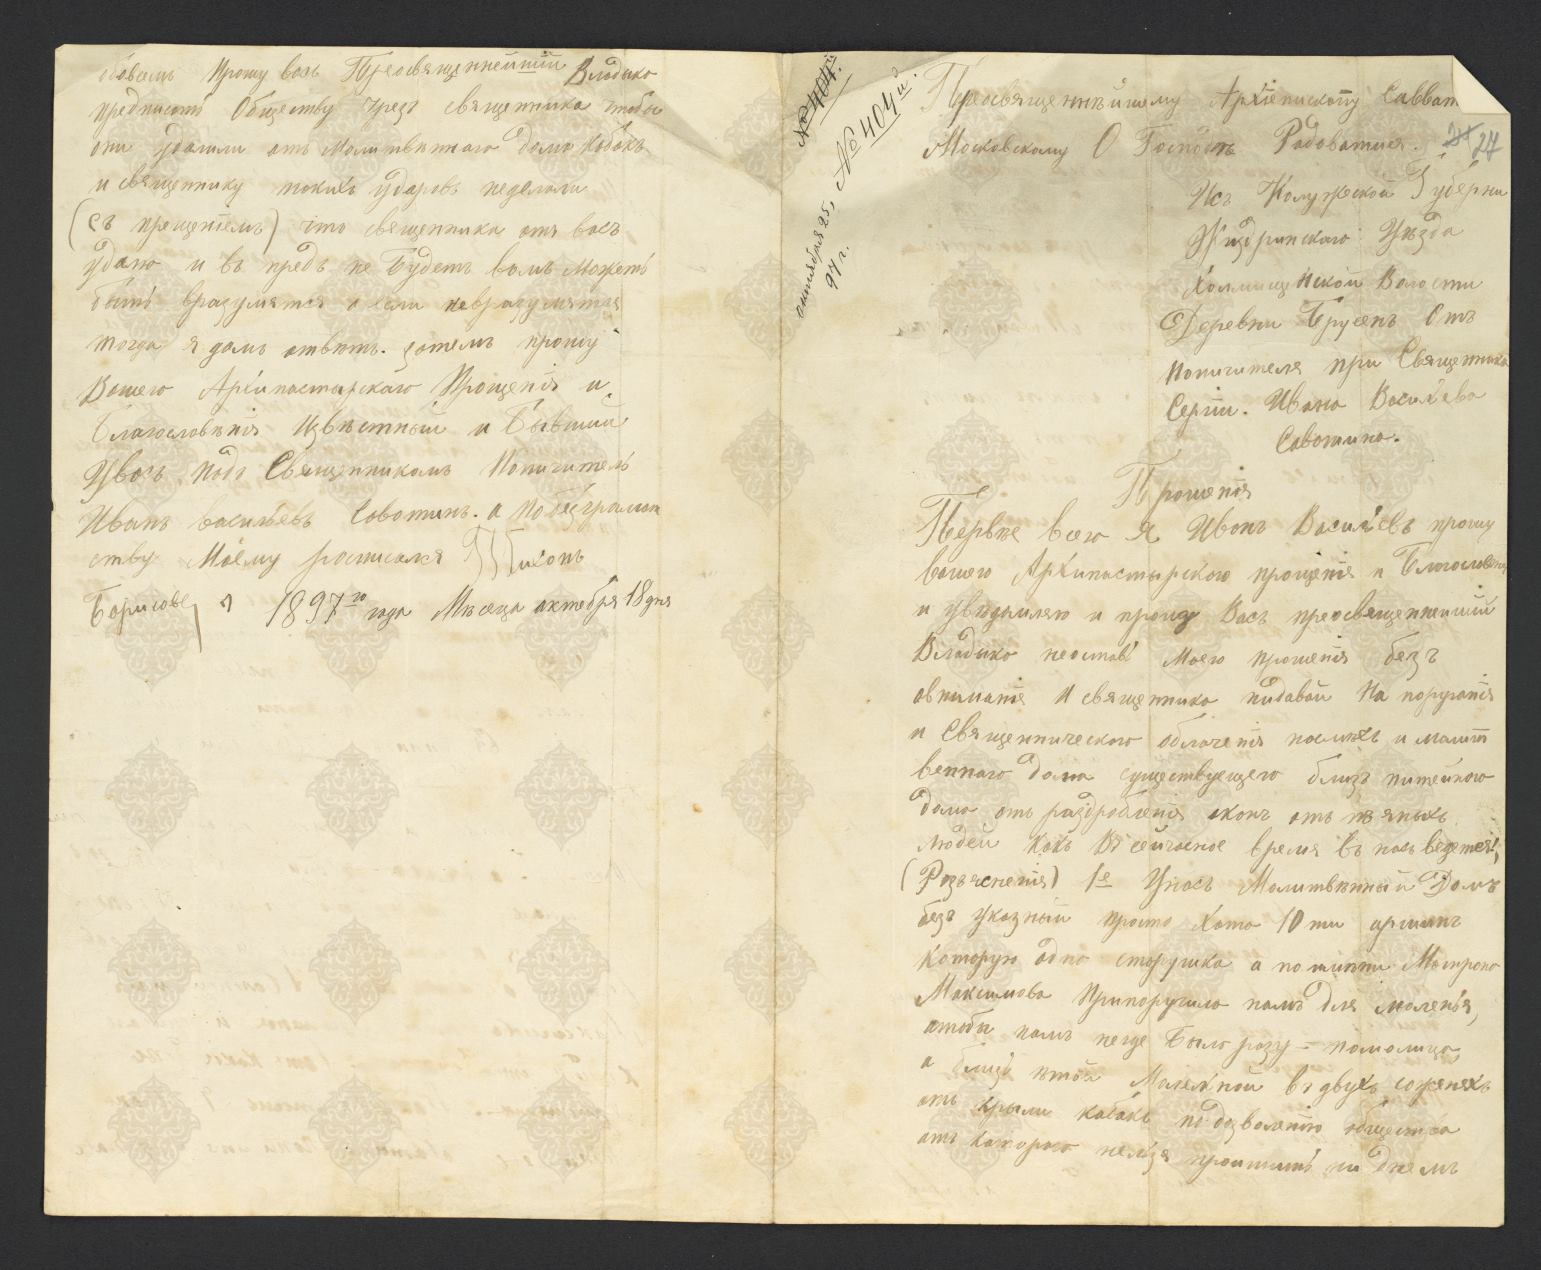 обоемъ Прошу васъ Преосвященнейший Владыко
предписать Обществу чрезъ священника чтобы
они удалили отъ Молитвеннаго дома Кобакъ
и священнику такихъ ударовъ неделали
(съ прещенiемъ) что священника отъ васъ
удалю и въ предъ не Будетъ вамъ Можетъ
быть вразумятся а если невразумятся
тогда я дамъ ответъ. затемъ прошу
Вашего Архипастырскаго Прощенiя и
Благословенiя Извѣстный и Бывший
Увасъ подъ Священникомъ Попичитель
Иванъ васильевъ Савотинъ. а по безграмот
ству Моему росписался Тихонъ
Борисовъ 1897го года Мѣсеца октебря 18 дня
№ 404й.
№ 404й.
октября 25,
97 г.
Преосвященнѣйшему Архiепископу Савват
Московскому О Господѣ Радоватися.
27
Изъ Колужской Губерни
Жиздринскаго Уѣзда
Холмищнской Волости
Деревни Брусенъ Отъ
попичителя при Священника
Сергiи. Ивана Василева
Савотина.
Прошенiя
Первѣе всего Я Иванъ Василевъ прошу
вашего Архипастырского прощенiя и Благословен
и увѣдомляю и прошу Васъ преосвященнейший
Владыко неоставъ Моего прошенiя безъ
овниманiя И священника нидавай На поруганiя
и Священнического облаченiя насмехъ и молит
веннаго дома существующего близъ питейного
дома отъ раздробленiя оконъ отъ пяныхъ
людей какъ Въ сейчасное время въ насъ ведется,
(Розъясненiя) 1е Унасъ Молитвенный Домъ
безъ указный просто хата 10 ти аршинъ
которую адна старушка а по имяни Матрона
Максимова Припоручила намъ для моленья,
чтобы намъ негде Было разу = помолица,
а близъ етой Молелной въ двухъ соженяхъ
отъ крыли кабакъ по дозволенiю общества
отъ которого нелзя проитить ни днемъ